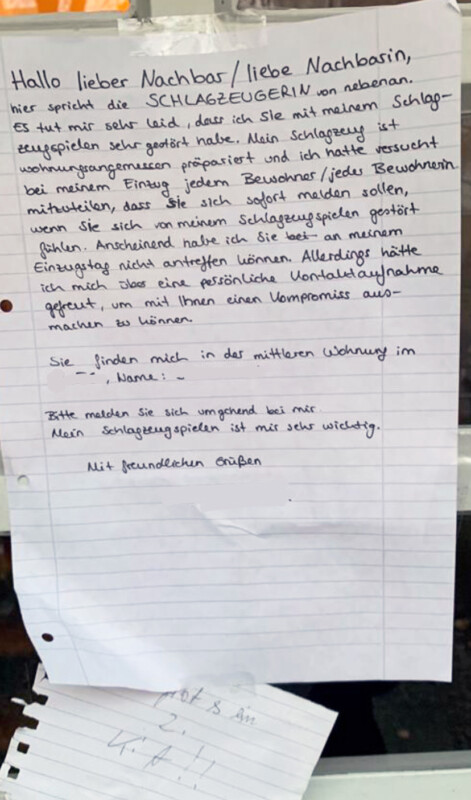 Hallo lieber Nachbar/liebe Nachbarin,
hier spricht die SCHLAGZEUGERIN von nebenan.
Es tut mir sehr leid, dass ich Sie mit meinem Schlag-
zeugspielen sehr gestört habe. Mein Schlagzeug ist
wohnungsangemessen präpariert und ich hatte versucht
bei meinem Einzug jedem Bewohner/jeder Bewohnerin
mitzuteilen, dass Sie sich sofort melden sollen,
wenn Sie sich von meinem Schlagzeugspielen gestört
fühlen. Anscheinend habe ich Sie bei an meinem
Einzugstag nicht antreffen können. Allerdings hätte
ich mich über eine persönliche Kontaktaufnahme
gefreut, um mit Ihnen einen Kompromiss aus-
machen zu können.
Sie finden mich in der mittleren Wohnung im
, Name:
Bitte melden Sie sich umgehend bei mir.
Mein Schlagzeugspielen ist mir sehr wichtig.
Mit freundlichen Grüßen
2.